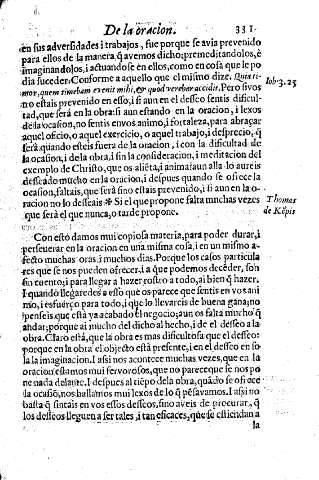 De la oracion. 331.
en sus adversidades i trabajos, fue porque se avia prevenido
para ellos de la manera q̃ avemos dicho, premeditandolos, è
imaginandolos, i actuandose en ellos, como en cosa que le po
dia suceder. Conforme a aquello que el mismo dize. Quia ti-
mor, quem timebam evenit mihi, & quod verebar accidit. Pero si vos
Iob. 3. 25
no estais prevenido en esso, i si aun en el desseo sentis dificul-
tad, que serà en la obra: si aun estando en la oracion, i lexos
de la ocasion, no sentis en vos animo, i fortaleza, para abraçar
aquel oficio, o aquel exercicio, o aquel trabajo, i desprecio, q̃
serà quando esteis fuera de la oracion, i con la dificultad de
la ocasion, i de la obra, i sin la consideracion, i meditacion del
exemplo de Christo, que os aliẽta, i anima? aun alla lo aureis
desseado mucho en la oracion, i despues quando se ofrece la
ocasion, faltais, que serà sino estais prevenido, i si aun en la o-
racion no lo desseais * Si el que propone falta muchas vezes
Thomas
que serà el que nunca, o tarde propone.
de Kẽpis
Con esto damos mui copiosa materia, para poder durar, i
perseverar en la oracion en una misma cosa, i en un mismo a-
fecto muchas oras, i muchos dias. Porque los casos particula
res que se nos pueden ofrecer, i a que podemos decẽder, son
sin cuento; i para llegar a hazer rostro a todo, ai bien q̃ hazer,
I quando llegaredes a esso que os parece que sentis en vos ani
mo, i esfuerço para todo, i que lo llevareis de buena gana; no
penseis que està ya acabado el negocio; aun os falta mucho q̃
andar; porque ai mucho del dicho al hecho, i de el desseo a la
obra. Claro està, que la obra es mas dificultosa que el desseo:
porque en la obra el objecto està presente, i en el desseo en so
la la imaginacion. I assi nos acontece muchas vezes, que en la
oracion estamos mui fervorosos, que no parece que se nos po
ne nada delante. I despues al tiẽpo de la obra, quãdo se ofrece
la ocasiõ, nos hallamos mui lexos de lo q̃ pẽsavamos. I assi no
basta q̃ sintais en vos essos desseos, sino aveis de procurar, q̃
los desseos lleguen a ser tales, i tan eficaces, que se estiendan a
la